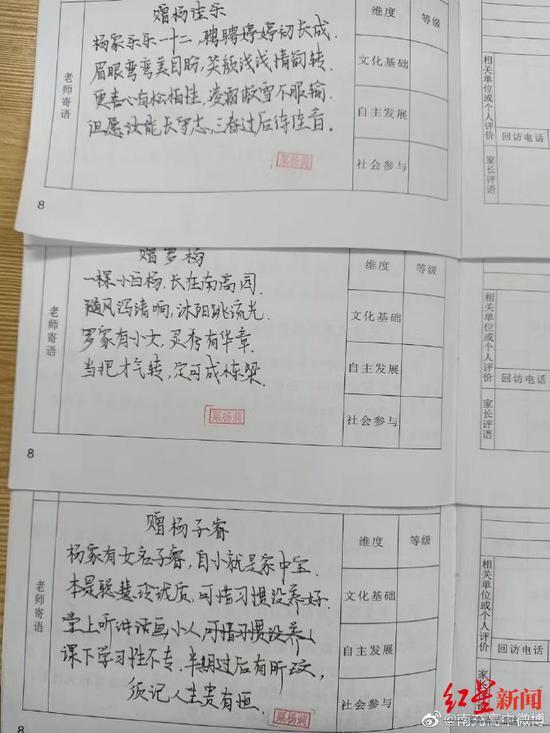 赠杨佳乐
杨家乐乐一十二，聘聘婷婷初长成。
眉眼弯弯美目盼，笑靥浅浅情间转
更喜心有松柏性，凌霜傲雪不服输
但愿汝能长守志，三春过后待佳音。
老师寄语
维度 等级
文化基础
自主发展
社会参与
相关单位或个人评价
回访电话
家长评语
8
赠罗杨
一棵小白杨，长在南高园
随风泻清响，沐阳跳流光
罗家有小女，灵秀有华章
当把才气转，定可成栋梁。
老师寄语
维度 等级
文化基础
自主发展
社会参与
相关单位或个人评价
回访电话
家长评语
8
赠杨子睿
杨家有女名子睿，自小就是家中宝
本是聪慧玲珑质，可惜习惯没养好
堂上听讲话画小人，可惜习惯没养
课下学习性不专，半期过后有
须记人生贵有恒
老师寄语
维度 等级
文化基础
自主发展
社会参与
相关单位或个人评价
回访电话
8
红星新闻
@南充高中微博